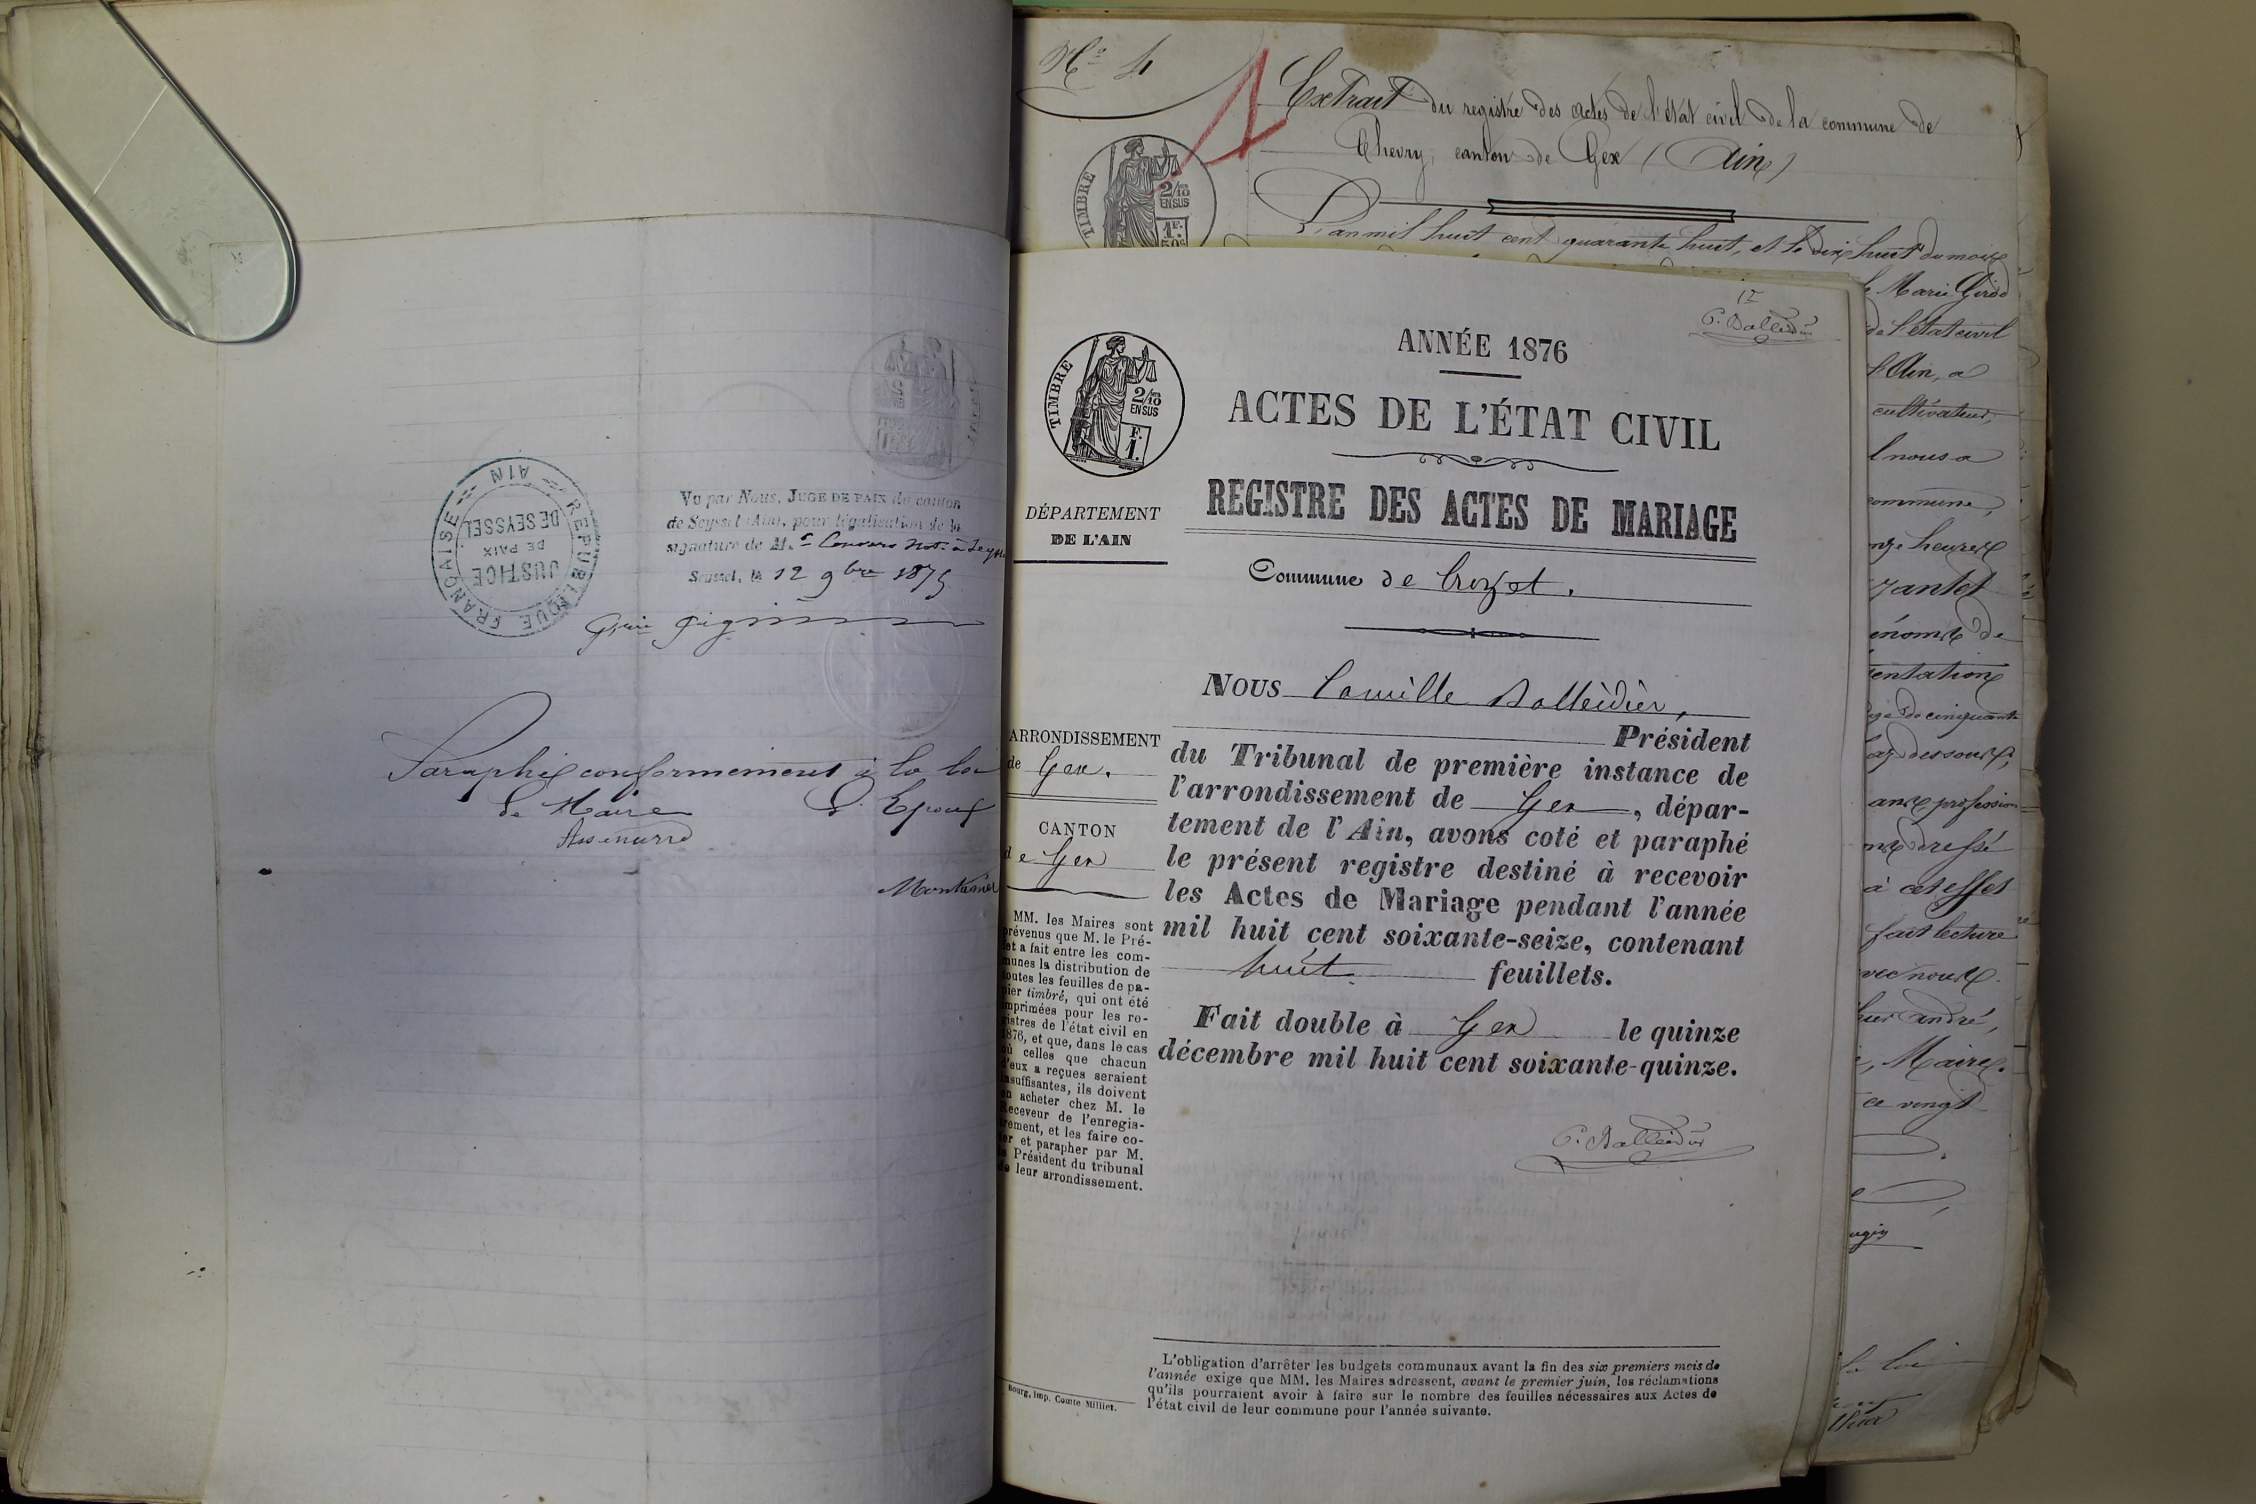 RÉPUBLIQUE FRANÇAISE
AIN
JUSTICE
DE PAIX
DE SEYSSEL
Vu par Nous, JUGE DE PAIX du canton
de Seyssel (Ain), pour légalisation de la
signature de M.e not. à
Seyssel, le 12 9bre 1875
Paraphé conformement à la loi
Le Maire L'Epoux
N° 4
Extrait du registre des actes de l'état civil de la commune de
Chevry, canton de Gex (Ain)
TIMBRE
2/10
EN SUS
1F.
50c
L'an mil huit cent quarante huit, et le dix huit du mois
Marie Girod
de l'état civil
l'Ain, a
cultivateur,
l nous a
commune,
heures
de
entation
de cinquante
dessous,
profession
dressé
à cet effet
fait lecture
vec nous.
andré,
Maire.
ce vingt
la loi
1r
C. Balleidier
ANNÉE 1876
ACTES DE L'ÉTAT CIVIL
REGISTRE DES ACTES DE MARIAGE
TIMBRE
2/10
EN SUS
F.
1.
DÉPARTEMENT
DE L'AIN
Commune de Crozet.
NOUS Camille Balleidier,
Président
du Tribunal de première instance de
l'arrondissement de Gex, dépar-
tement de l'Ain, avons coté et paraphé
le présent registre destiné à recevoir
les Actes de Mariage pendant l'année
mil huit cent soixante-seize, contenant
huit feuillets.
Fait double à Gex le quinze
décembre mil huit cent soixante-quinze.
C. Balleidier
ARRONDISSEMENT
de Gex.
CANTON
de Gex
MM. les Maires sont
prévenus que M. le Pré-
fet a fait entre les com-
munes la distribution de
toutes les feuilles de pa-
pier timbré, qui ont été
imprimées pour les re-
gistres de l'état civil en
1876, et que, dans le cas
où celles que chacun
d'eux a reçues seraient
insuffisantes, ils doivent
en acheter chez M. le
Receveur de l'enregis-
trement, et les faire co-
ter et parapher par M.
le Président du tribunal
de leur arrondissement.
L'obligation d'arrêter les budgets communaux avant la fin des six premiers mois de
l'année exige que MM. les Maires adressent, avant le premier juin, les réclamations
qu'ils pourraient avoir à faire sur le nombre des feuilles nécessaires aux Actes de
l'état civil de leur commune pour l'année suivante.
Bourg, imp. Comte Milliet.